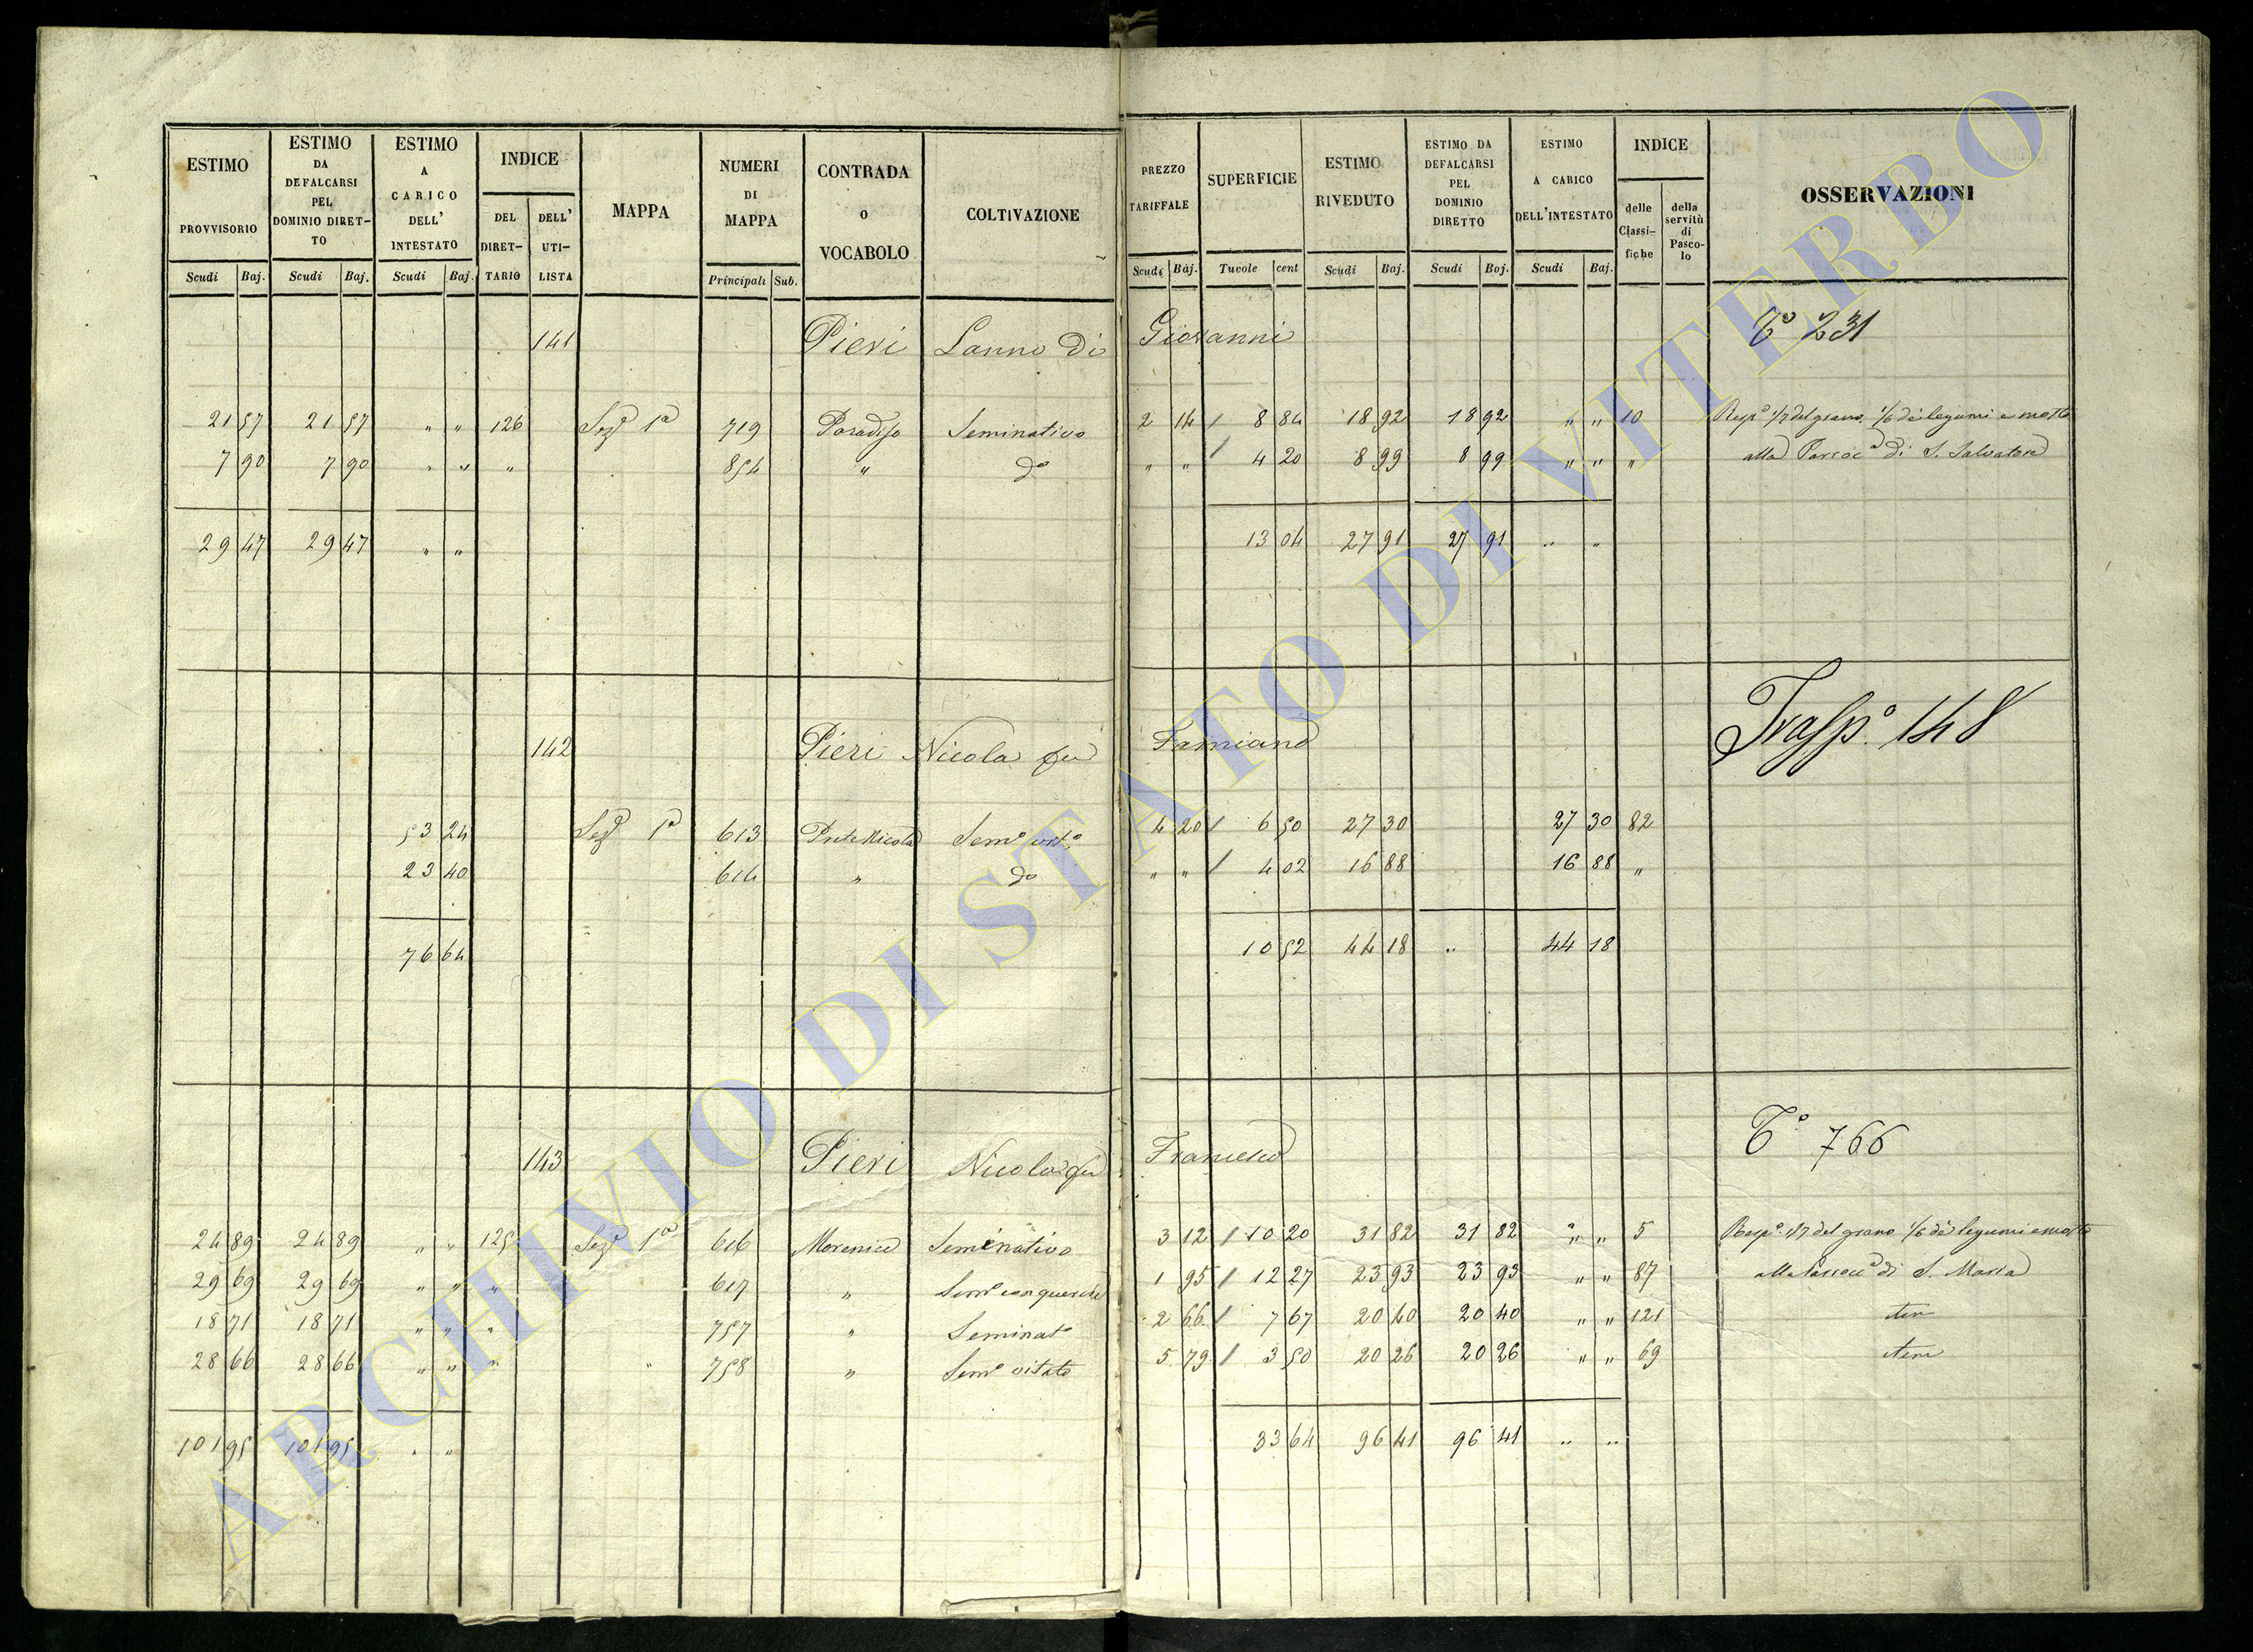 ESTIMO PROVVISORIO Scudi Baj.
ESTIMO DA DEFALCARSI PEL DOMINIO DIRET-TO Scudi Baj.
ESTIMO A CARICO DELL' INTESTATO Scudi Baj.
INDICE DEL DIRET-TARIO DELL' UTI-LISTA
MAPPA
NUMERI DI MAPPA Principali Sub.
CONTRADA O VOCABOLO
COLTIVAZIONE
PREZZO TARIFFALE Scudi Baj.
SUPERFICIE Tavole cent
ESTIMO RIVEDUTO Scudi Baj.
ESTIMO DA DEFALCARSI PEL DOMINIO DIRETTO Scudi Baj.
ESTIMO A CARICO DELL'INTESTATO Scudi Baj.
INDICE delle Classi-fiche della servitù di Pasco-lo
OSSERVAZIONI
141 Pieri di Giovanni T° 231
21 57 21 57 " " 126 Sez.e 1a 719 Paradiso Seminativo 2 14 / 8 84 18 92 18 92 " " 10 Resp.e 1/7 del grano. 1/6 de legumi e mosto
7 90 7 90 " " " 854 " do " " / 4 20 8 99 8 99 " " " alla Parroc.a di S. Salvatore
29 47 29 47 " " 13 04 27 91 27 91 " "
142 Pieri Nicola fu Famiano Trasp.° 148
53 24 Sez.e 1a 613 Prete Nicola Sem.° 4 20 / 6 50 27 30 27 30 82
23 40 614 " do " " / 4 02 16 88 16 88 "
76 64 10 52 44 18 " 44 18
143 Pieri Nicola fu Francesco T° 766
24 89 24 89 " " 125 Sez.e 1a 616 Morenice Seminativo 3 12 / 10 20 31 82 31 82 " " 5 Resp.e 1/7 del grano 1/6 de legumi e mosto
29 69 29 69 " " " 617 " Sem.° con querce 1 95 / 12 27 23 93 23 93 " " 87 alla Parroc.a di S. Maria
18 71 18 71 " " " 757 " Seminat.° 2 66 / 7 67 20 40 20 40 " " 121 item
28 66 28 66 " " " " 758 " Sem.° vitato 5 79 / 3 50 20 26 20 26 " " 69 item
101 95 101 95 " " 33 64 96 41 96 41 " "
ARCHIVIO DI STATO DI VITERBO